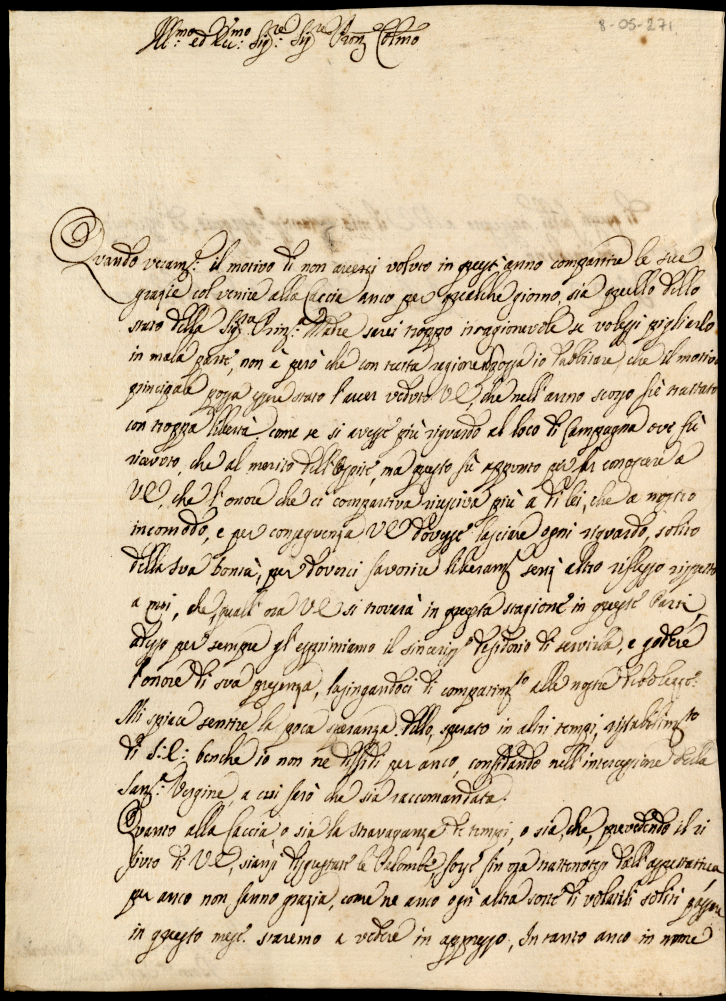 8-05-271
Ill:mo ed Ecc:mo Sig:re Sig:re Pron Colmo
Quando veram: il motivo di non averci voluto in quest'anno compartire le sue
grazie col venire alla Caccia anco per qualche giorno, sia quello dello
stato della Sig:ra Prin:a Madre sarei troppo irragionevole se volessi pigliarlo
in mala parte, non è però che con tutta ragione possa io dubitare che il motivo
principale possa essere stato l'aver veduto VE, che nell'anno scorso fù trattato
con troppa libertà, come se si avesse più riguardo al loco di Campagna ove fù
ricevuto, che al merito dell'Ospite, ma questo fù appunto per far conoscere a
VE, che l'onore che ci compartiva riusciva più a di lei, che a nostro
incomodo, e per conseguenza VE dovesse lasciare ogni riguardo, solito
della sua bontà, per doverci favorire liberam: senz'altro riflesso rispetto
a noi, che quall'ora VE si troverà in questa stagione in queste Parti,
adesso per sempre gl'esprimiamo il sinceris:o desiderio di servirla, e godere
l'onore di sua presenza, lusingandoci di compatim:to alle nostre debolezze.
Mi spiace sentire la poca speranza dello, sperato in altri tempi, ristabilim:to
di S:E: benche io non ne diffidi per anco, confidando nell'intercessione della
Sant: Vergine, a cui farò che sia raccomandata.
Quanto alla caccia o sia la stravaganza de tempi, o sia, che, prevedendo il ri
fiuto di VE, siansi disgustate le Palombe, forse sin ora trattenutesi dall'aspettativa
per anco non fanno grazia, come ne anco ogn'altra sorte di volatili soliti passare
in questo mese. staremo a vedere in appresso, In tanto anco in nome